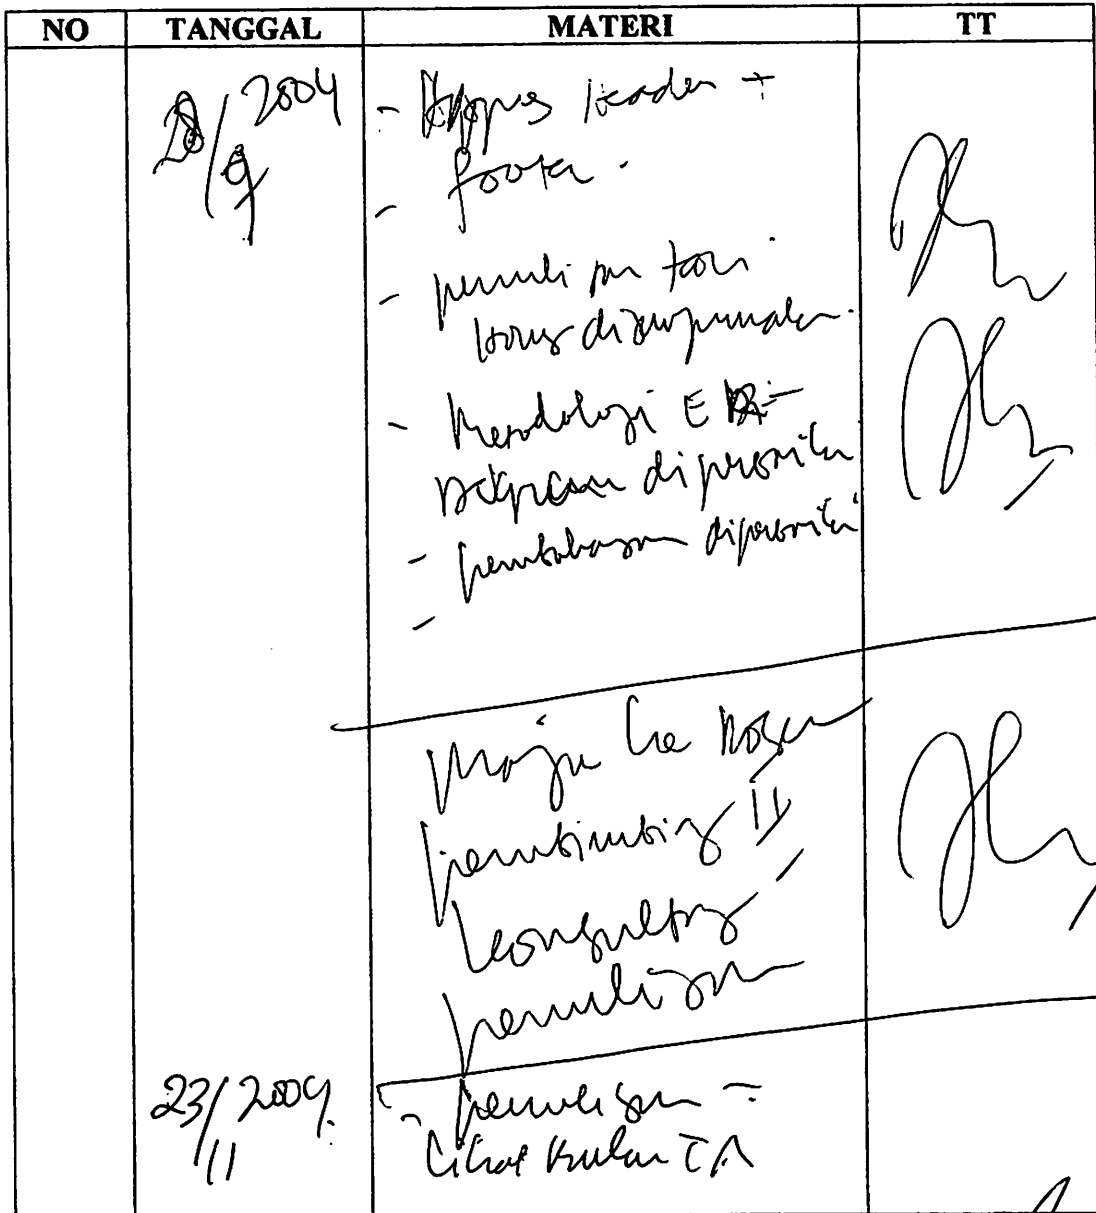 NO TANGGAL MATERI TT
28/9 2004 - Hapus header +
footer.
-
- penulisan
harus disempurnakan.
- Metodologi
Diagram diperbaiki
- pembahasan diperbaiki
-
Maju ke Dosen
pembimbing II
penulisan
23/11 2004. - penulisan =
Lihat TA